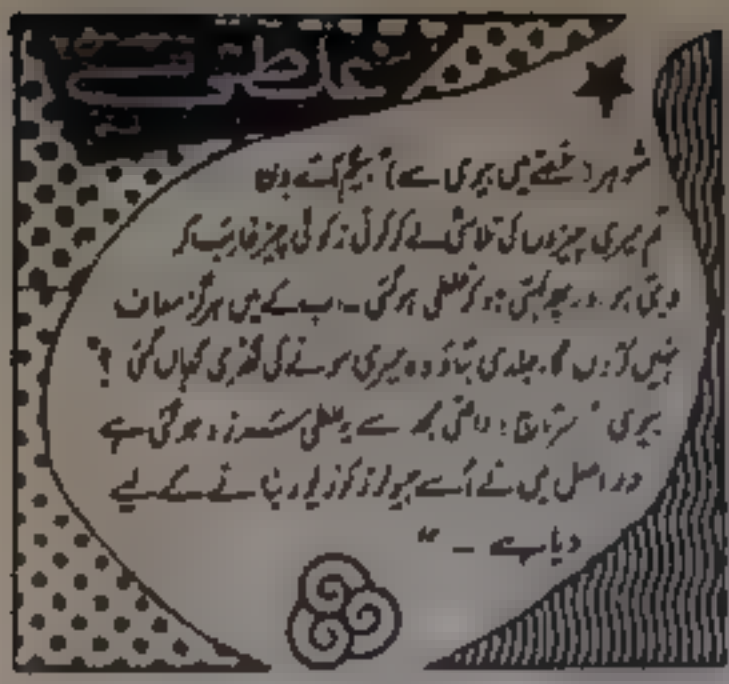 غلطی
شوہر (غصے میں بیوی سے) " بیگم آئے دن
تم میری چیزوں کی تلاشی لے کر کوئی نہ کوئی چیز غایب کر
دیتی ہو اور پھر کہتی ہو کہ غلطی ہوگئی ۔ اب کے میں ہرگز معاف
نہیں کروں گا۔ جلدی بتاؤ وہ میری سونے کی گھڑی کہاں گئی ؟"
بیوی " سرتاج ! واقعی مجھ سے یہ غلطی سرزد ہوگئی ہے
در اصل میں نے اُسے جیولرز کو زیور بنانے کے لیے
دیا ہے ۔ "